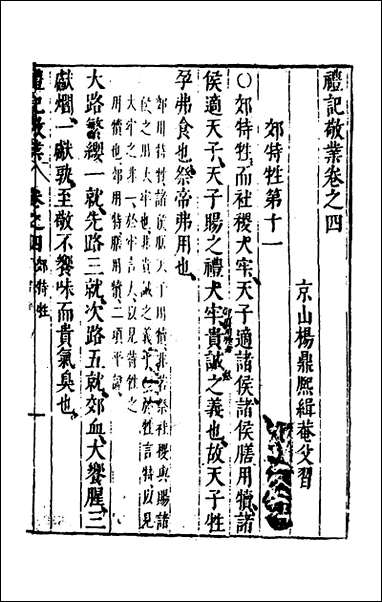 禮記敬業卷之四
京山楊鼎熙緝菴父習
郊特牲第十一
○郊特牲而社稷大牢天子適諸侯諸侯膳用犢諸
侯適天子天子賜之禮大牢貴誠之義也故天子牲
孕弗食也祭帝弗用也
郊用特牲諸侯膳天子用犢
侯之用大牢也非貴誠之義
大牢之
用犢也郊用特膳用犢二項平講
大路繁纓一就先路三就次路五就郊血大饗腥三
獻爓一獻孰至敬不饗味而貴氣臭也
禮記敬業 卷之四 郊特牲 一